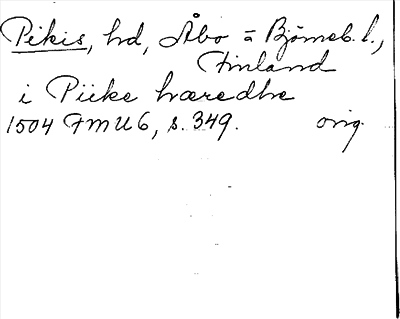 Pikis, hd, Åbo ā Björneb. l.,
Finland
i Piike hæredhe
1504 FMU 6, s. 349. orig.